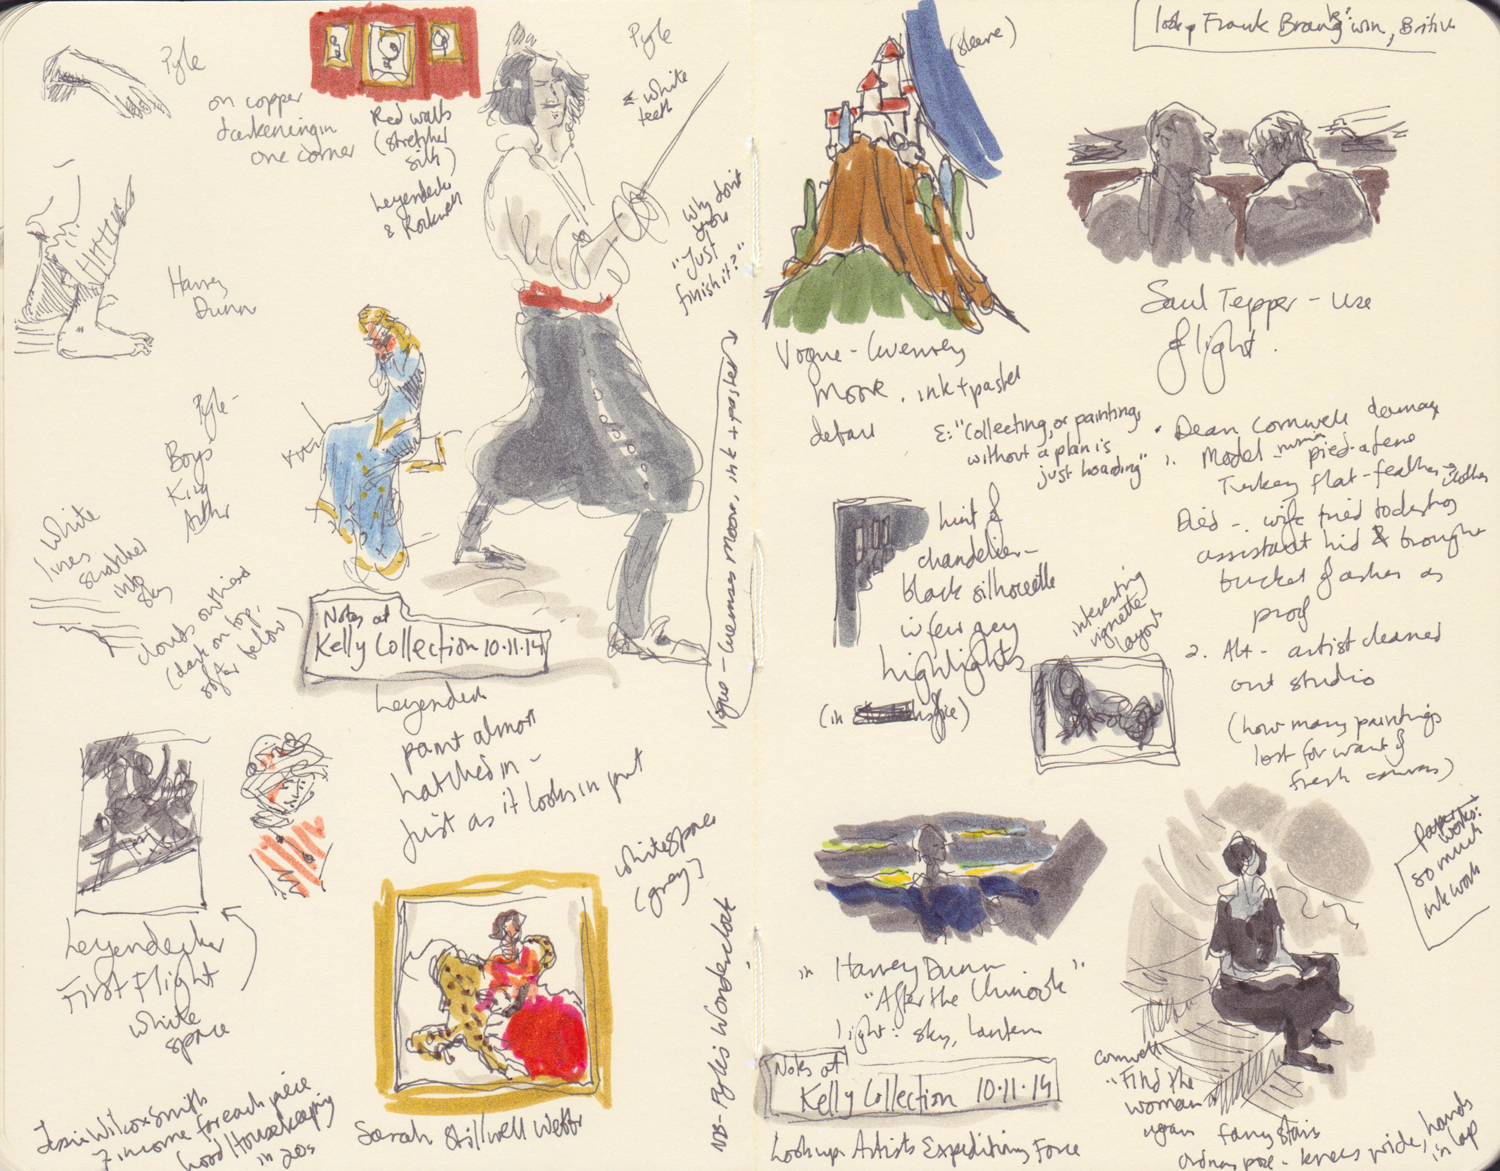 Pyle
on copper
darkening in
one corner
Red walls
(stretcher
silk)
Leyendecker
& Rockwell
Pyle
white
teeth
"Why don't
you
just
finish it?"
Harvey
Dunn
Pyle -
Boys
King
Arthur
White
lines
scratched
into
sky
clouds
(dark on top -
softer below)
Notes at
Kelly Collection 10.11.14
Leyendecker
paint almost
hatched in -
just as it looks in print
Leyendecker
First Flight
white
space
white space
(grey)
Sarah Stillwell Weber
Jessie Wilcox Smith
income for each piece
Good Housekeeping
in 20s
Vogue - Guernsey Moore, ink + pastel
NB - Pyle's Wonderclock
(sleeve)
look up Frank Brangwin, British
Vogue - Guernsey
Moore. ink + pastel
detail
Saul Tepper - use
of light.
E: "Collecting, or painting,
without a plan is
just hoarding"
• Dean Cornwell
1. Model
pied-a-terre
Turkey flat - feathers
clothes
Died - wife tried to destroy
assistant hid & brought
bucket of ashes as
proof
2. Alt - artist cleaned
out studio
(how many paintings
lost for want of
fresh canvas)
hint of
chandelier -
black silhouette
w few grey
highlights
(in
interesting
vignette
layout
in Harvey Dunn
"After the Chinook"
light: sky, lantern
paper
works:
so much
ink work
Notes at
Kelly Collection 10.11.14
Look up Artists Expeditionary Force
Cornwell
"Find the
Woman
again fancy stairs
ordinary pose - knees wide, hands
in lap